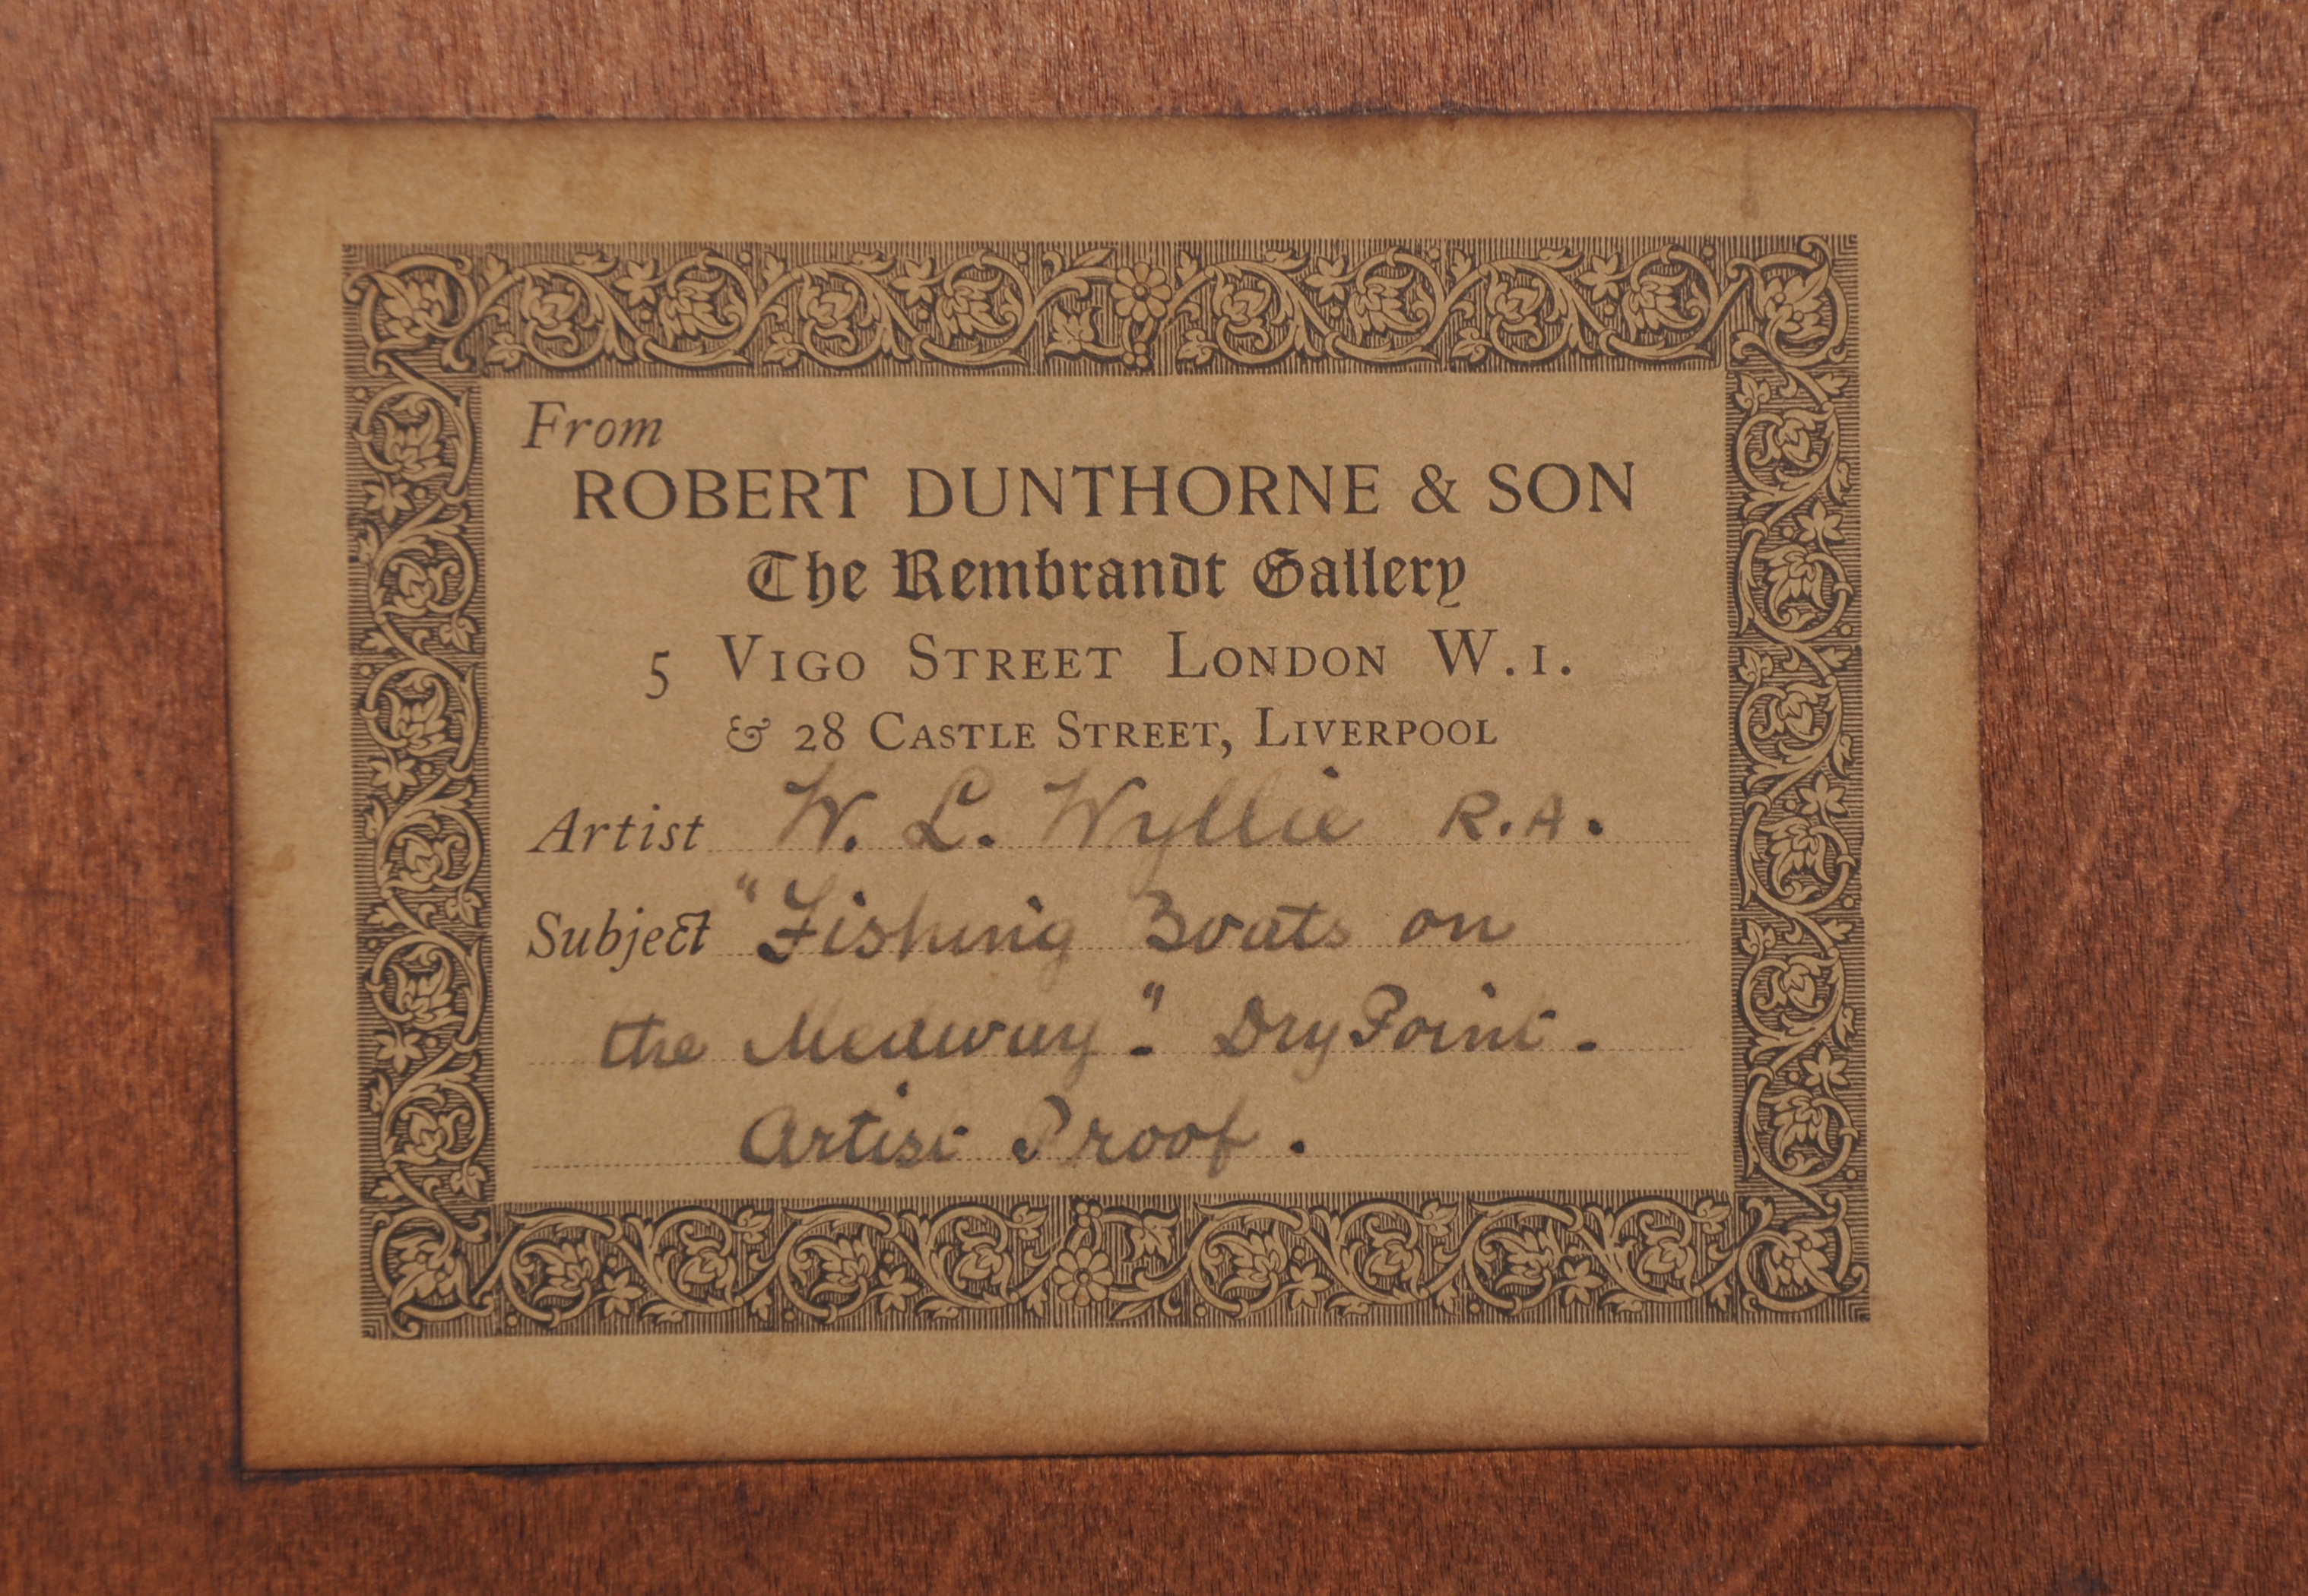 From
ROBERT DUNTHORNE & SON
The Rembrandt Gallery
5 VIGO STREET LONDON W.1.
& 28 CASTLE STREET, LIVERPOOL
Artist W. L. Wyllie R.A.
Subject "Fishing Boats on
the Medway". Dry Point.
Artist Proof.